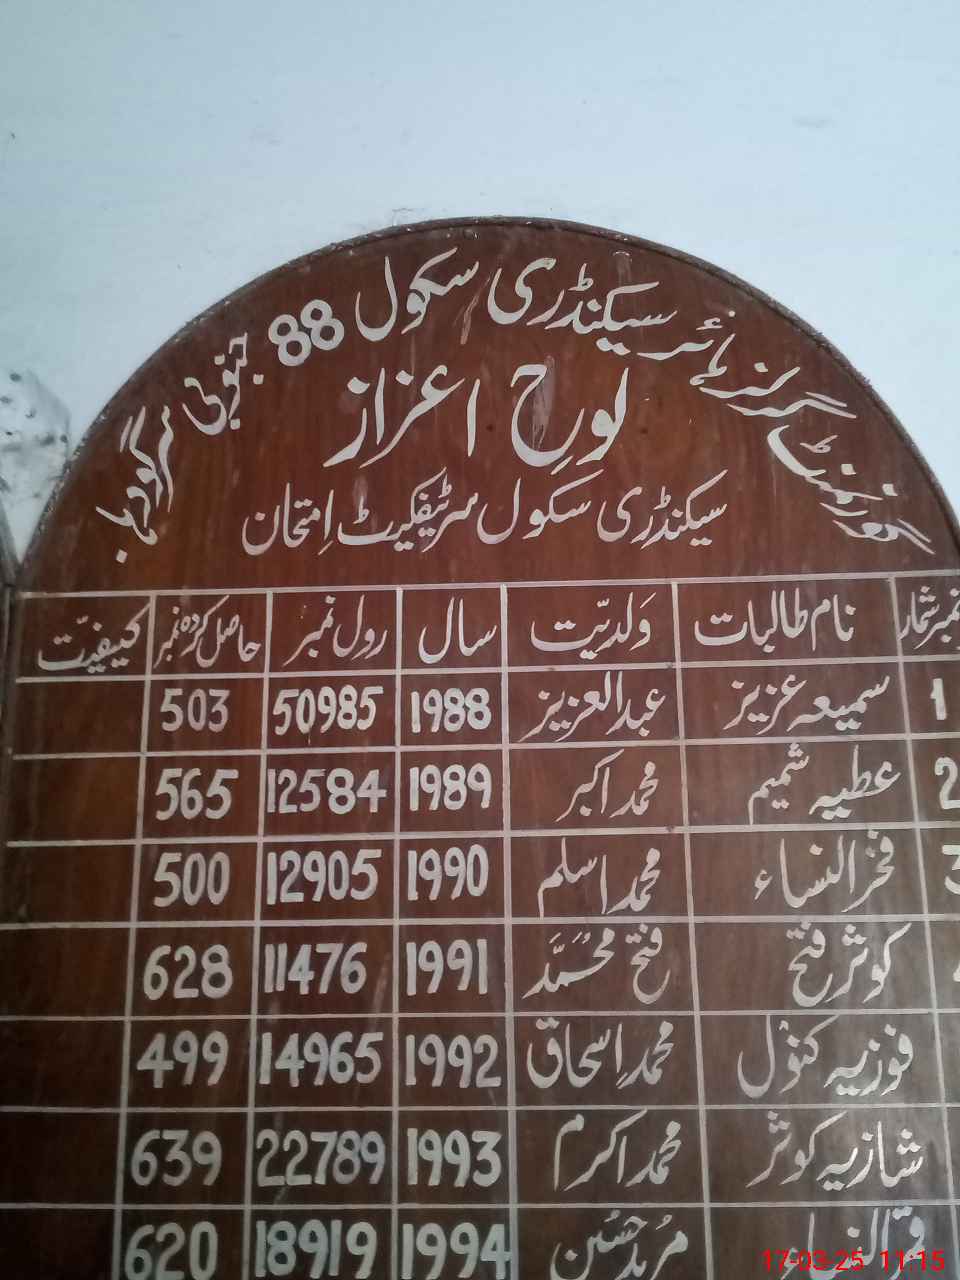 گورنمنٹ گرلز ہائر سیکنڈری سکول 88 جنوبی سرگودہا
لوحِ اعزاز
سیکنڈری سکول سرٹیفکیٹ اِمتحان
نمبر شمار نام طالبات وَلدیّت سال رول نمبر حاصل کردہ نمبر کیفیّت
1 سمیعہ عزیز عبدالعزیز 1988 50985 503
2 عطیہ شمیم محمد اکبر 1989 12584 565
3 فخرالنساء محمد اسلم 1990 12905 500
کوثر فتح فتح محمّد 1991 11476 628
فوزیہ کنول محمد اِسحاق 1992 14965 499
شازیہ کوثر محمد اکرم 1993 22789 639
مرید حسین 1994 18919 620
17-03-25 11:15